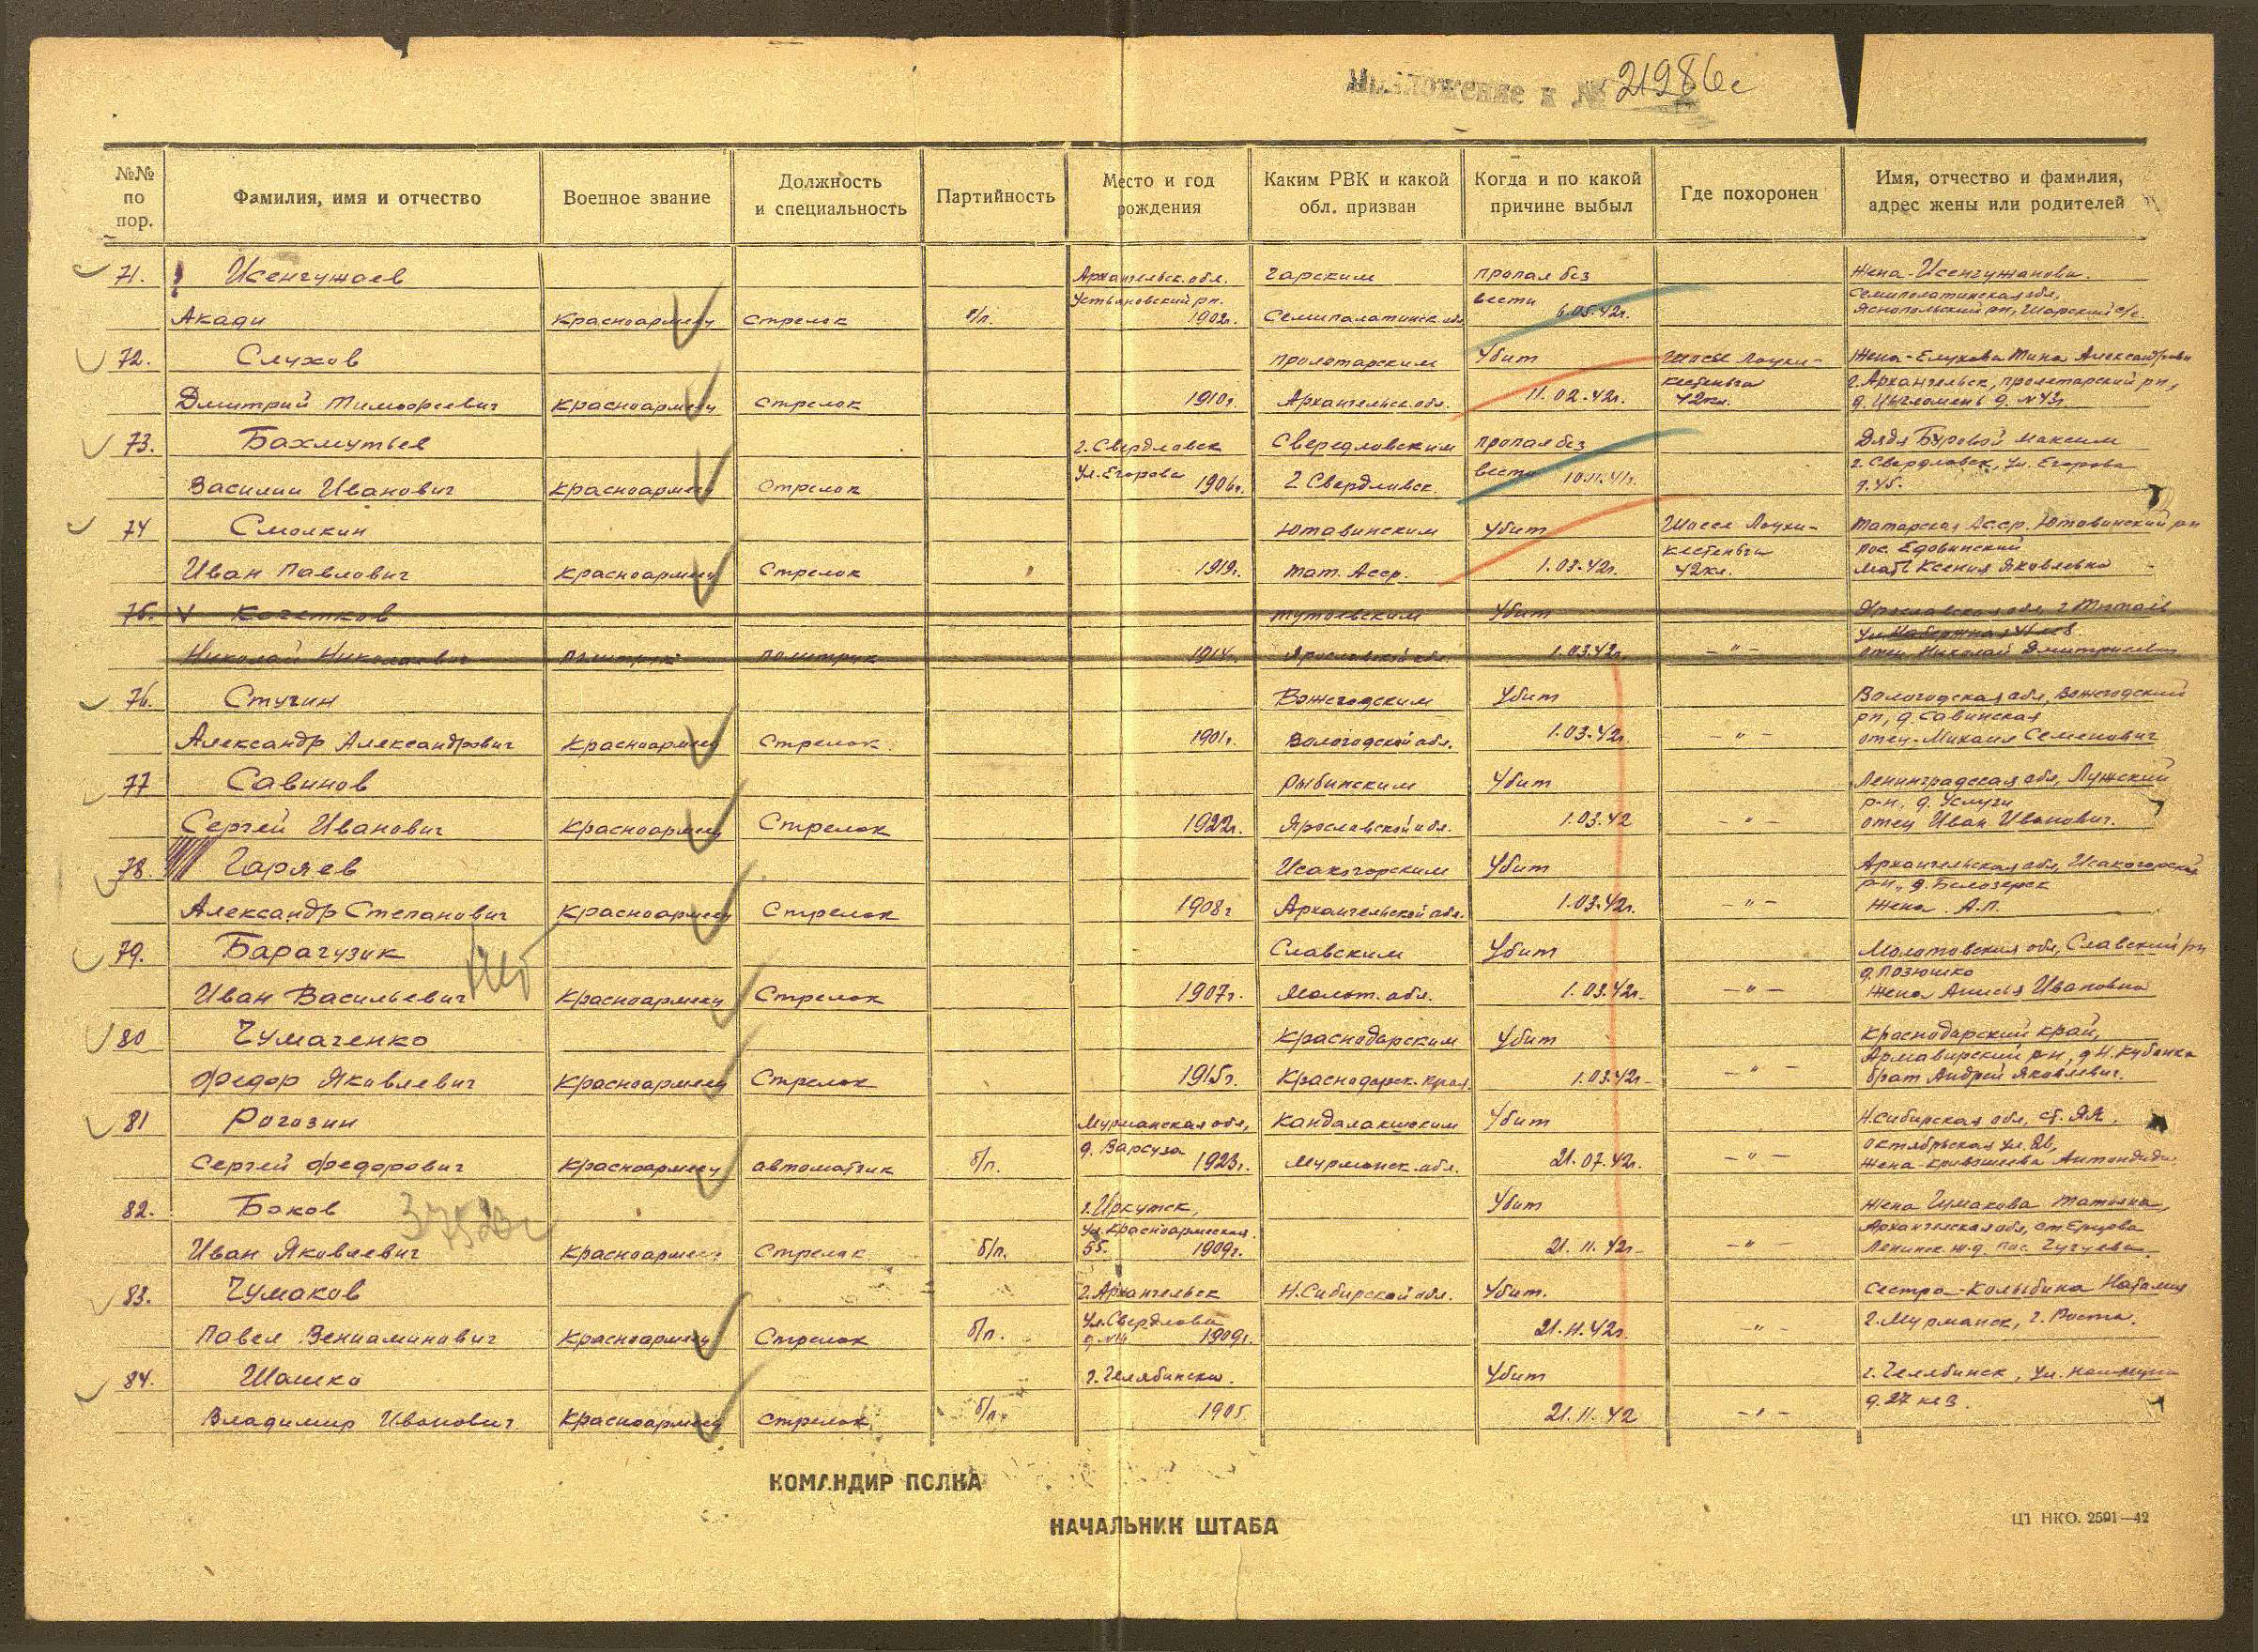 Приложение к № 21986с
№№ по пор.
Фамилия, имя и отчество
Военное звание
Должность и специальность
Партийность
Место и год рождения
Каким РВК и какой обл. призван
Когда и по какой причине выбыл
Где похоронен
Имя, отчество и фамилия, адрес жены или родителей
71. Исенгужаев Архангельск. обл. Чарским пропал без Жена-Исенгужанова.
Устьяновский рн. вести Семипалатинская обл,
Акади Красноармеец Стрелок б/п. 1902г. Семипалатинск. обл 6.05.42г. Шарский с/с.
72. Слухов Пролетарским Убит Шоссе Лоухи- Жена-Елухова Тина Александровн
Кестеньга г. Архангельск, пролетарский рн,
Дмитрий Тимофеевич Красноармеец Стрелок 1910г. Архангельск. обл. 11.02.42г. 42кл. д. Цыгломень д. №43г
73. Бахмутьев г. Свердловск Свередловским пропал без Дядя Буровой Максим
Ул. Егорова вести г. Свердловск, ул. Егорова
Василии Иванович Красноармеец Стрелок 1906г. г. Свердловск. 10.11.41г. д. 45.
74 Смолкин Ютавинским Убит Шоссе Лоухи- Татарская Ас.ср. Ютовинский рн
Кестеньга пос. Едовинский
Иван Павлович Красноармеец Стрелок 1919г. Тат. Асср. 1.03.42г. 42кл. мать Ксения Яковлевна
75. V Кочетков Тутаевским Убит Ярославская обл, г. Тутаев
Николай Николаевич Политрук политрук 1914г. Ярославской обл. 1.03.42г. -"- отец Николай Дмитриевич
76. Стугин Вожегодским Убит Вологодская обл, Вожегодский
рн, д. Савинская
Александр Александрович Красноармеец Стрелок 1901г. Вологодской обл. 1.03.42г. -"- отец-Михаил Семенович
77 Савинов Рыбинским Убит Ленинградская обл, Лужский
р-н, д. Услуги
Сергей Иванович Красноармеец Стрелок 1922г. Ярославской обл. 1.03.42 -"- отец Иван Иванович.
78. Гаряев Исакогорским Убит Архангельская обл, Исакогорский
рн, д. Белозерск
Александр Степанович Красноармеец Стрелок 1908г Архангельской обл. 1.03.42г. -"- Жена. А.П.
79. Барагузик Славским Убит Молотовская обл, Славский рн
д. Позюшко
Иван Васильевич Красноармеец Стрелок 1907г. Молот. обл. 1.03.42г. -"- Жена Анисья Ивановна
80 Чумаченко Краснодарским Убит Краснодарский край,
Армавирский рн, д Н. Кубанка
Федор Яковлевич Красноармеец Стрелок 1915г. Краснодарск. края. 1.03.42г. -"- брат Андрей Яковлевич.
81 Рогозин Мурманская обл, Кандалакшским Убит Н. Сибирская обл, ст. Яя,
д. Варзуга Октябрьская ул. 26,
Сергей Федорович Красноармеец автоматчик б/п. 1923г. Мурманск. обл. 21.07.42г. -"-
82. Боков 37523с г. Иркутск, Убит Жена Чумакова Татьяна,
Ул. Красноармеская Архангельская обл, ст Ерцово
Иван Яковлевич Красноармеец Стрелок б/п. 55. 1909г. 21.11.42г. -"- Ленинск. ж.д. пос. Чугуева.
83. Чумаков г. Архангельск Н. Сибирской обл. Убит. Сестра-Колыбина Наталия
Ул. Свердлова г. Мурманск, г. Роста.
Павел Вениаминович Красноармеец Стрелок б/п. 1909г. 21.11.42г. -"-
84. Шашко г. Челябинска. Убит г. Челябинск, ул.
Владимир Иванович Красноармеец Стрелок б/п. 1905 21.11.42 -"- д. 27 кв 3.
КОМАНДИР ПОЛКА
НАЧАЛЬНИК ШТАБА
ЦТ НКО. 2591—42